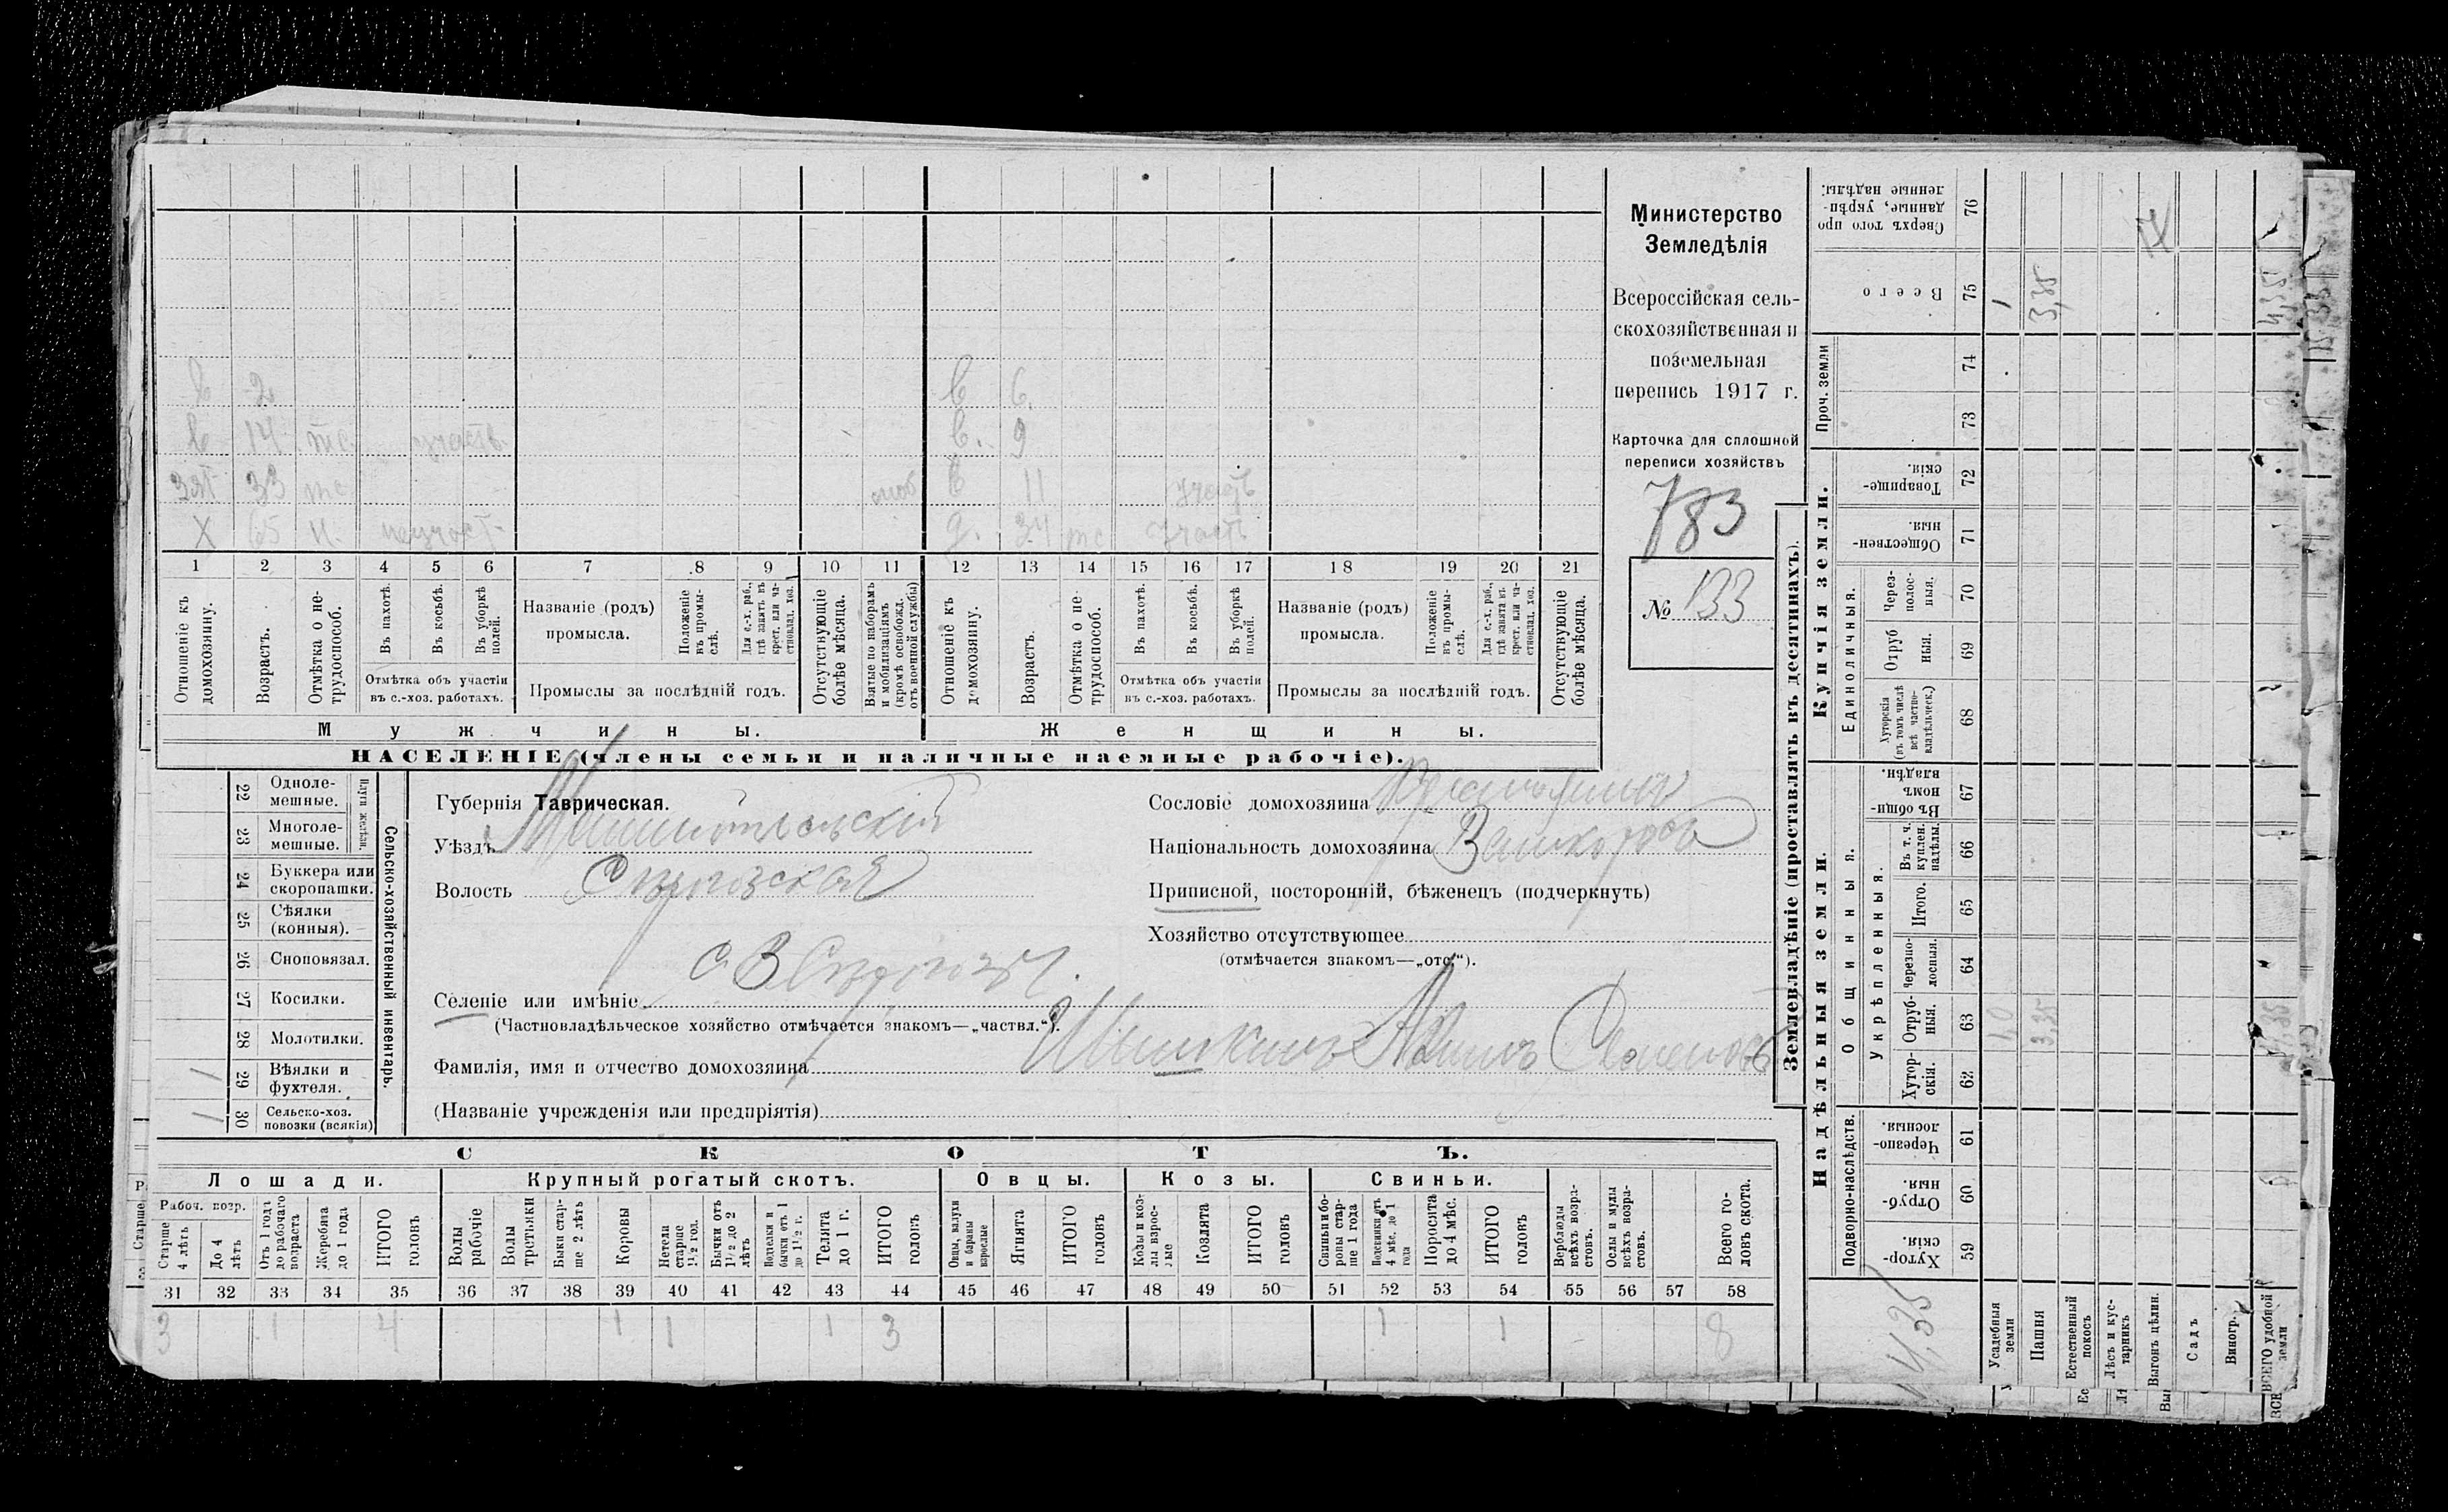 Министерство
Земледѣлія
Всероссійская сель-
скохозяйственная и
поземельная
перепись 1917 г.
Карточка для сплошной
переписи хозяйствъ
783
№ 133
в 2 в 6
в 14 тс участв в. 9
зят 33 тс моб в 11 участв
х 65 н. неучаст. д. 34 тс участв
1 2 3 4 5 6 7 8 9 10 11 12 13 14 15 16 17 18 19 20 21
Отношеніе къ домохозяину.
Возрастъ.
Отмѣтка о не-трудоспособ.
Въ пахотѣ.
Въ косьбѣ.
Въ уборкѣ полей.
Отмѣтка объ участіи
въ с.-хоз. работахъ.
Названіе (родъ)
промысла.
Положеніе въ промы-слѣ.
Для с.-х. раб., гдѣ занятъ въ крест. или ча-стновлад. хоз.
Промыслы за послѣдній годъ.
Отсутствующіе болѣе мѣсяца.
Взятые по наборамъ и мобилизаціямъ (кромѣ освобожд. отъ военной службы)
Отношеніе къ домохозяину.
Возрастъ.
Отмѣтка о не-трудоспособ.
Въ пахотѣ.
Въ косьбѣ.
Въ уборкѣ полей.
Отмѣтка объ участіи
въ с.-хоз. работахъ.
Названіе (родъ)
промысла.
Положеніе въ промы-слѣ.
Для с.-х. раб., гдѣ занята въ крест. или ча-стновлад. хоз.
Промыслы за послѣдній годъ.
Отсутствующіе болѣе мѣсяца.
Мужчины. Женщины.
НАСЕЛЕНІЕ (члены семьи и наличные наемные рабочіе).
Сельско-хозяйственный инвентарь.
Плуги желѣзн.
22 Одноле-мешные.
23 Многоле-мешные.
24 Буккера или скоропашки.
25 Сѣялки (конныя).
26 Сноповязал.
27 Косилки.
28 Молотилки.
1 29 Вѣялки и фухтеля.
1 30 Сельско-хоз. повозки (всякія)
Губернія Таврическая.
Уѣздъ
Волость
Селеніе или имѣніе
(Частновладѣльческое хозяйство отмѣчается знакомъ—„частвл.“).
Фамилія, имя и отчество домохозяина
(Названіе учрежденія или предпріятія)
Сословіе домохозяина
Національность домохозяина
Приписной, посторонній, бѣженецъ (подчеркнуть)
Хозяйство отсутствующее
(отмѣчается знакомъ—„отс“).
СКОТЪ.
Лошади. Крупный рогатый скотъ. Овцы. Козы. Свиньи.
Рабоч. возр.
Старше 4 лѣтъ
До 4 лѣтъ
Отъ 1 года до рабочаго возраста
Жеребята до 1 года
ИТОГО головъ
Волы рабочіе
Волы третьяки
Быки стар-ше 2 лѣтъ
Коровы
Нетели старше 1½ год.
Бычки отъ 1½ до 2 лѣтъ
Подтелки и бычки отъ 1 до 1½ г.
Телята до 1 г.
ИТОГО головъ
Овцы, валухи и бараны взрослые
Ягнята
ИТОГО головъ
Козы и коз-лы взрос-лые
Козлята
ИТОГО головъ
Свиньи бо-ровы стар-ше 1 года
Подсвинки отъ 4 мѣс. до 1 года
Поросята до 4 мѣс.
ИТОГО головъ
Верблюды всѣхъ возра-стовъ.
Ослы и мулы всѣхъ возра-стовъ.
Всего го-ловъ скота.
31 32 33 34 35 36 37 38 39 40 41 42 43 44 45 46 47 48 49 50 51 52 53 54 55 56 57 58
3 1 4 1 1 1 3 1 1 8
Землевладѣніе (проставлять въ десятинахъ).
Надѣльныя земли. Купчія земли. Проч. земли
Подворно-наслѣдств.
Общинныя.
Укрѣпленныя.
Единоличныя.
59 Хутор-скія.
60 Отруб-ныя.
61 Черезпо-лосныя.
62 Хутор-скія.
63 Отруб-ныя.
64 черезпо-лосныя.
65 Итого.
66 Въ т. ч. куплен. надѣлы.
67 Въ общин-номъ владѣн.
68 Хуторскія (въ томъ числѣ всѣ частно-владѣльческ.)
69 Отруб ныя.
70 Через-полос-ныя.
71 Обществен-ныя.
72 Товарище-скія.
73
74
75 Всего
76 Сверхъ того про данные, укрѣп-ленные надѣлы.
Усадебныя земли
Пашня
Естественный покосъ
Лѣсъ и кус-тарникъ
Выгонъ цѣлин.
Садъ
Виногр.
ВСЕГО удобной земли
1,0
3,35
1
3,35
4,35
4,35
4,35